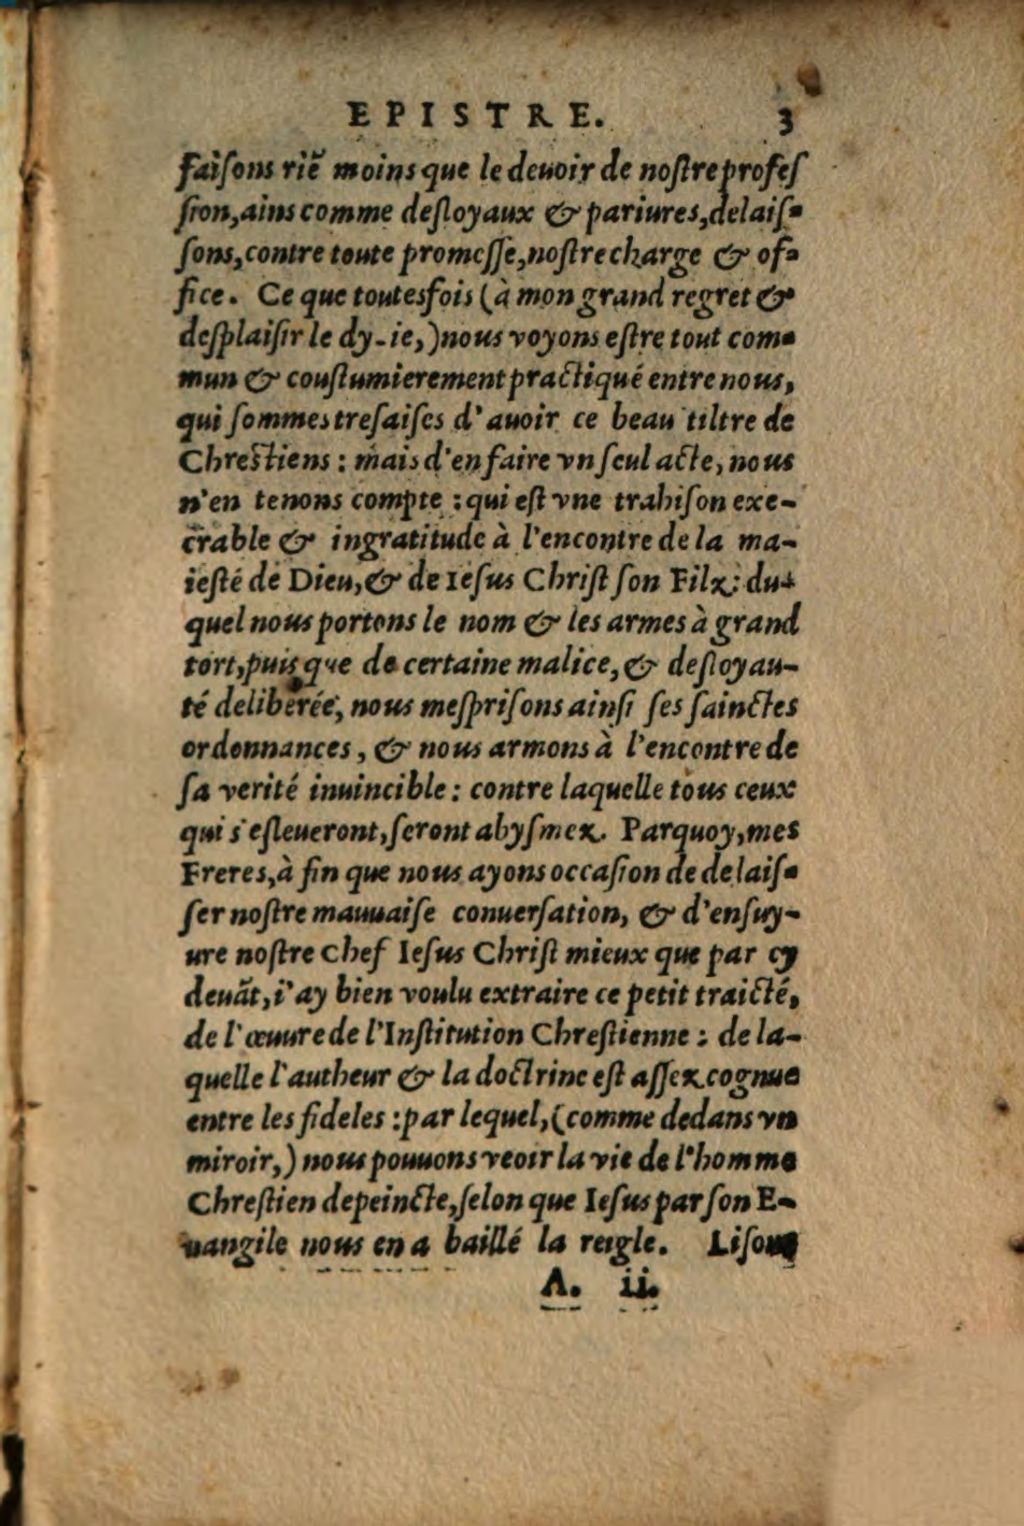 EPISTRE. 3
faisons riẽ moins que le deuoir de nostre profes
sion, ains comme desloyaux & pariures, delais-
sons, contre toute promesse, nostre charge & of-
fice. Ce que toutesfois (à mon grand regret &
desplaisir le dy-ie,) nous voyons estre tout com-
mun & coustumierement practiqué entre nous,
qui sommes tresaises d'auoir ce beau tiltre de
Chrestiens : mais d'en faire vn seul acte, nous
n'en tenons compte : qui est vne trahison exe-
crable & ingratitude à l'encontre de la ma-
iesté de Dieu, & de Iesus Christ son Filz: du-
quel nous portons le nom & les armes à grand
tort, puis que de certaine malice, & desloyau-
té deliberée, nous mesprisons ainsi ses sainctes
ordonnances, & nous armons à l'encontre de
sa verité inuincible : contre laquelle tous ceux
qui s'esleueront, seront abysmez. Parquoy, mes
Freres, à fin que nous ayons occasion de delais-
ser nostre mauuaise conuersation, & d'ensuy-
ure nostre Chef Iesus Christ mieux que par cy
deuãt, i'ay bien voulu extraire ce petit traicté,
de l'œuure de l'Institution Chrestienne : de la-
quelle l'autheur & la doctrine est assez cognue
entre les fideles : par lequel, (comme dedans vn
miroir,) nous pouuons veoir la vie de l'homme
Chrestien depeincte, selon que Iesus par son E-
uangile nous en a baillé la reigle. Lisons
A. ii.